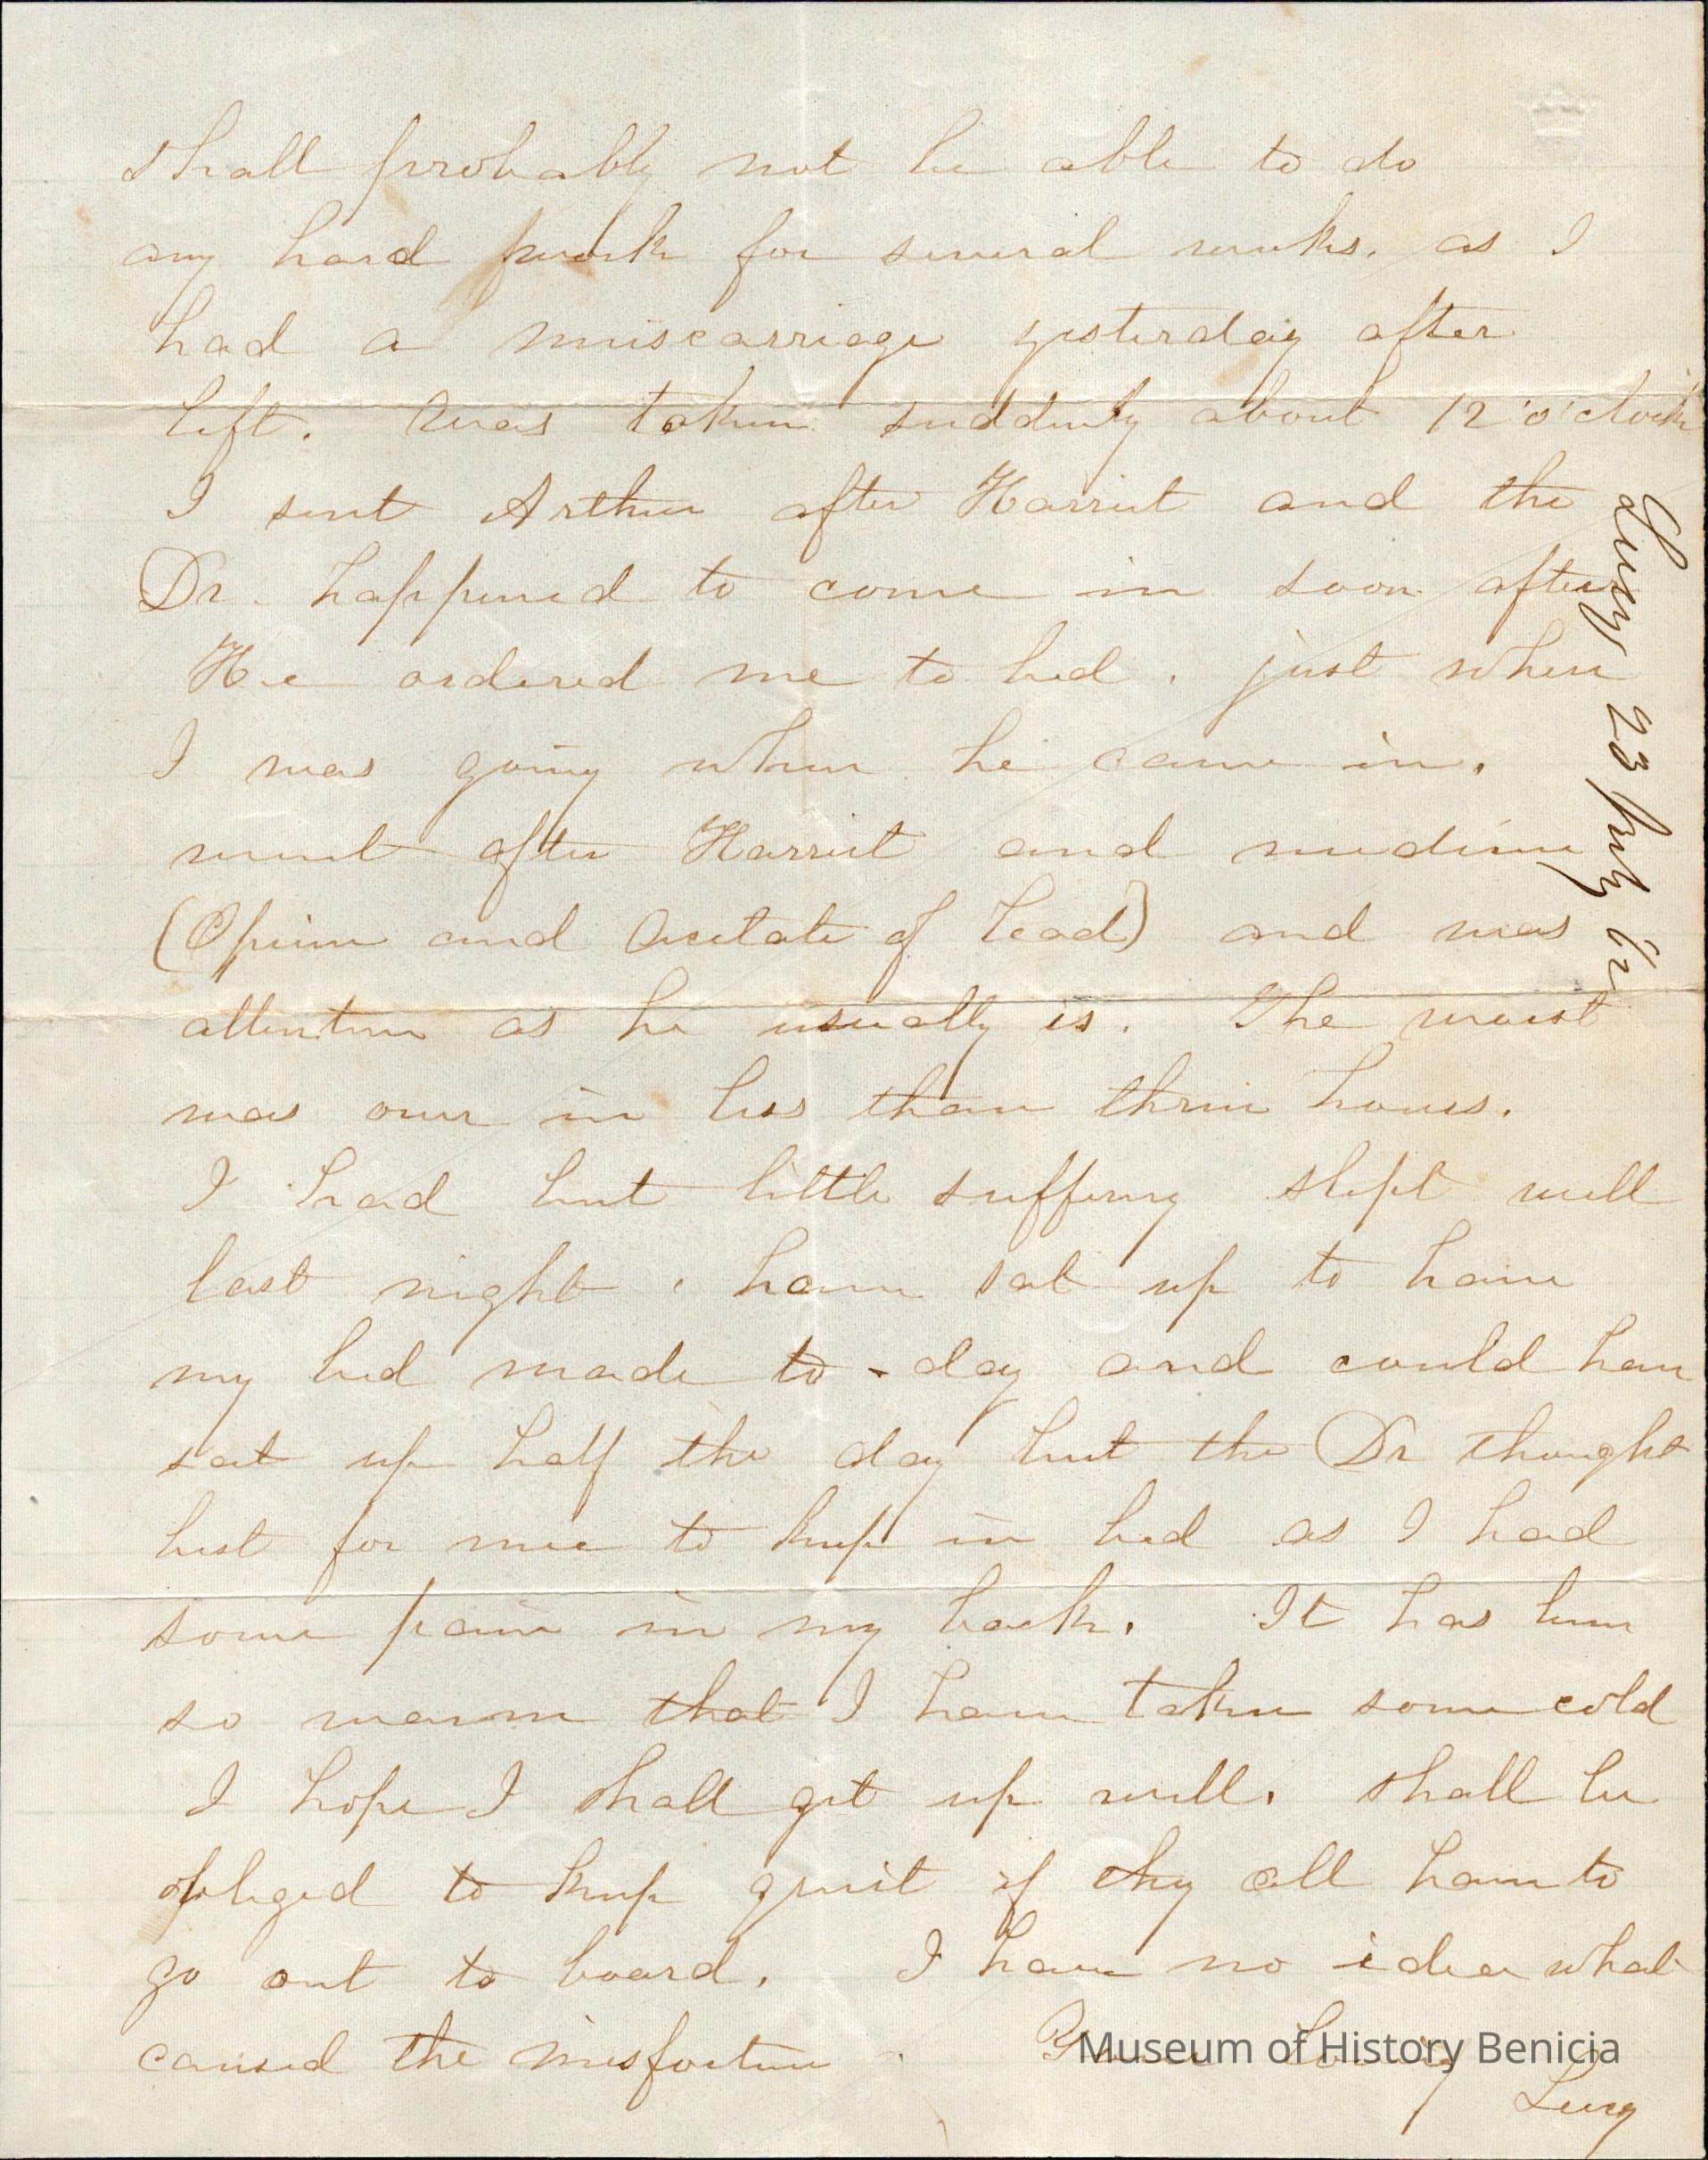 shall probably not be able to do
any hard work for several weeks, as I
had a miscarriage yesterday after
left. Was taken suddenly about 12 o'clock
I sent Arthur after Harriet and the
Dr. happened to come in soon after
He ordered me to bed, just where
I was going when he came in.
went after Harriet and medicine
(Opium and Acetate of Lead) and was
attentive as he usually is. The worst
was over in less than three hours.
I had but little suffering slept well
last night, have sat up to have
my bed made to-day and could have
sat up half the day but the Dr thought
best for me to keep in bed as I had
some pain in my back. It has been
so warm that I have taken some cold
I hope I shall get up well, shall be
obliged to keep quiet if they all have to
go out to board. I have no idea what
caused the misfortune.
Loving
Lucy
Lucy 23 July 62
Museum of History Benicia